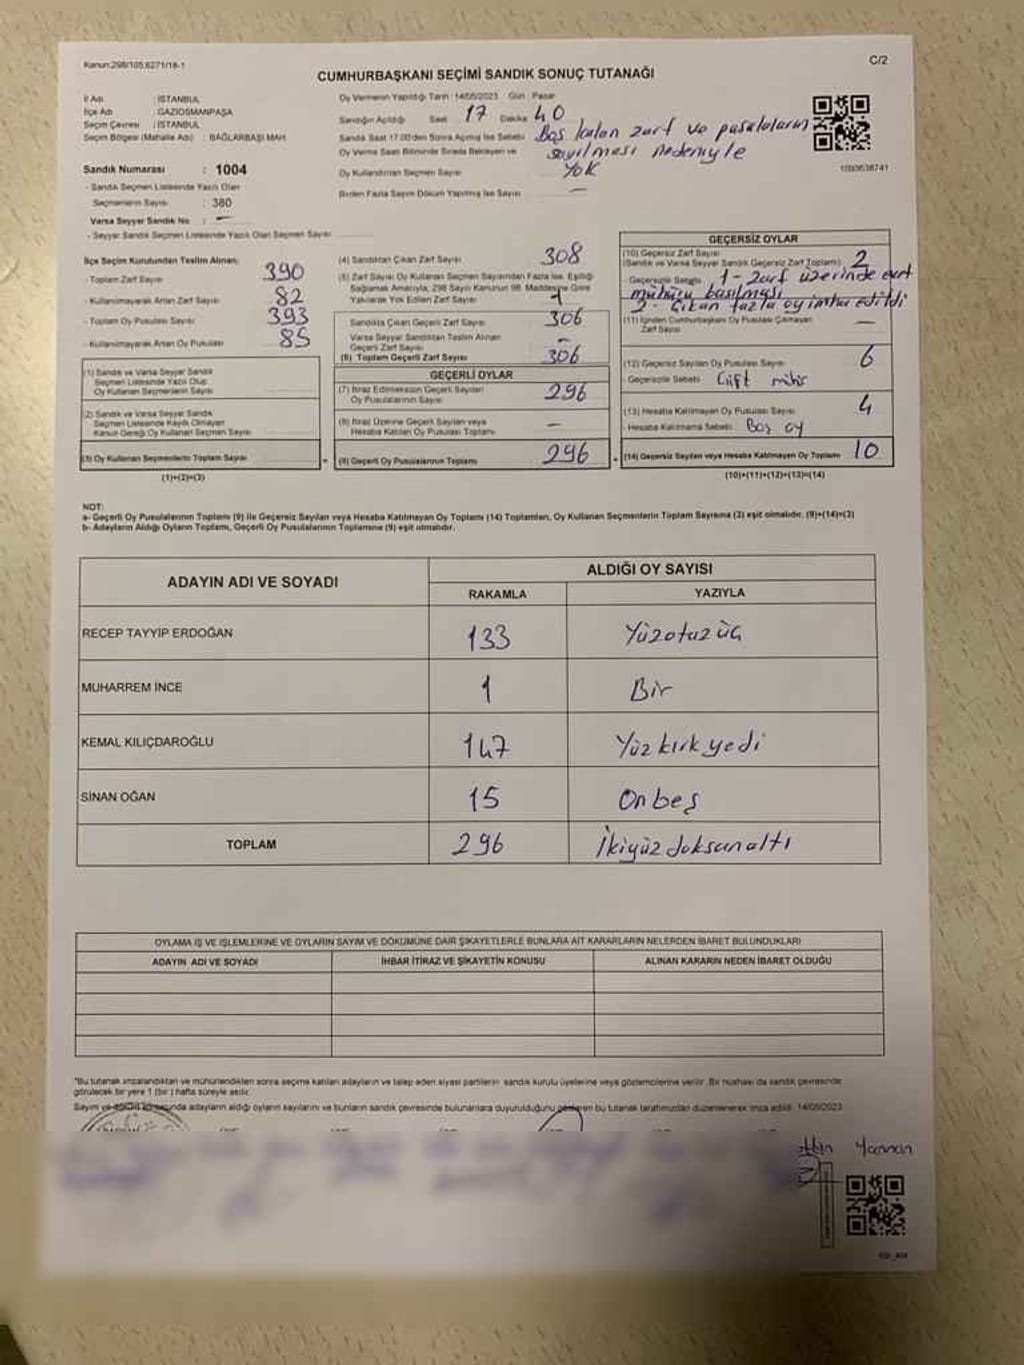 Kanun:298/105,6271/18-1
C/2
CUMHURBAŞKANI SEÇİMİ SANDIK SONUÇ TUTANAĞI
İl Adı : İSTANBUL
İlçe Adı : GAZİOSMANPAŞA
Seçim Çevresi : İSTANBUL
Seçim Bölgesi (Mahalle Adı) : BAĞLARBAŞI MAH.
Sandık Numarası : 1004
- Sandık Seçmen Listesinde Yazılı Olan
Seçmenlerin Sayısı : 380
Varsa Seyyar Sandık No : —
- Seyyar Sandık Seçmen Listesinde Yazılı Olan Seçmen Sayısı
Oy Vermenin Yapıldığı Tarih : 14/05/2023 Gün : Pazar
Sandığın Açıldığı Saat 17 Dakika 40
Sandık Saat 17:00'den Sonra Açılmış İse Sebebi Boş kalan zarf ve pusulaların
sayılması nedeniyle
Oy Verme Saati Bitiminde Sırada Bekleyen ve
Oy Kullandırılan Seçmen Sayısı YOK
Birden Fazla Sayım Döküm Yapılmış İse Sayısı —
1093638741
İlçe Seçim Kurulundan Teslim Alınan;
- Toplam Zarf Sayısı 390
- Kullanılmayarak Artan Zarf Sayısı 82
- Toplam Oy Pusulası Sayısı 393
- Kullanılmayarak Artan Oy Pusulası 85
(1) Sandık ve Varsa Seyyar Sandık
Seçmen Listesinde Yazılı Olup
Oy Kullanan Seçmenlerin Sayısı
(2) Sandık ve Varsa Seyyar Sandık
Seçmen Listesinde Kaydı Olmayan
Kanun Gereği Oy Kullanan Seçmen Sayısı
(3) Oy Kullanan Seçmenlerin Toplam Sayısı
(1)+(2)=(3)
(4) Sandıktan Çıkan Zarf Sayısı 308
(5) Zarf Sayısı Oy Kullanan Seçmen Sayısından Fazla İse, Eşitliği
Sağlamak Amacıyla, 298 Sayılı Kanunun 98. Maddesine Göre
Yakılarak Yok Edilen Zarf Sayısı 1
Sandıkta Çıkan Geçerli Zarf Sayısı 306
Varsa Seyyar Sandıktan Teslim Alınan
Geçerli Zarf Sayısı —
(6) Toplam Geçerli Zarf Sayısı 306
GEÇERLİ OYLAR
(7) İtiraz Edilmeksizin Geçerli Sayılan
Oy Pusulalarının Sayısı 296
(8) İtiraz Üzerine Geçerli Sayılan veya
Hesaba Katılan Oy Pusulası Toplamı —
(9) Geçerli Oy Pusulalarının Toplamı 296
GEÇERSİZ OYLAR
(10) Geçersiz Zarf Sayısı
(Sandık ve Varsa Seyyar Sandık Geçersiz Zarf Toplamı) 2
- Geçersizlik Sebebi 1- zarf üzerinde
mühürü basılması
2- Çıkan fazla oy imha edildi
(11) İçinden Cumhurbaşkanı Oy Pusulası Çıkmayan
Zarf Sayısı —
(12) Geçersiz Sayılan Oy Pusulası Sayısı 6
- Geçersizlik Sebebi Çift mühür
(13) Hesaba Katılmayan Oy Pusulası Sayısı 4
- Hesaba Katılmama Sebebi Boş oy
(14) Geçersiz Sayılan veya Hesaba Katılmayan Oy Toplamı 10
(10)+(11)+(12)+(13)=(14)
NOT:
a- Geçerli Oy Pusulalarının Toplamı (9) ile Geçersiz Sayılan veya Hesaba Katılmayan Oy Toplamı (14) Toplamları, Oy Kullanan Seçmenlerin Toplam Sayısına (3) eşit olmalıdır. (9)+(14)=(3)
b- Adayların Aldığı Oyların Toplamı, Geçerli Oy Pusulalarının Toplamına (9) eşit olmalıdır.
ADAYIN ADI VE SOYADI
ALDIĞI OY SAYISI
RAKAMLA YAZIYLA
RECEP TAYYİP ERDOĞAN 133 Yüzotuzüç
MUHARREM İNCE 1 Bir
KEMAL KILIÇDAROĞLU 147 Yüzkırkyedi
SİNAN OĞAN 15 Onbeş
TOPLAM 296 İkiyüzdoksanaltı
OYLAMA İŞ VE İŞLEMLERİNE VE OYLARIN SAYIM VE DÖKÜMÜNE DAİR ŞİKAYETLERLE BUNLARA AİT KARARLARIN NELERDEN İBARET BULUNDUKLARI
ADAYIN ADI VE SOYADI İHBAR İTİRAZ VE ŞİKAYETİN KONUSU ALINAN KARARIN NEDEN İBARET OLDUĞU
*Bu tutanak imzalandıktan ve mühürlendikten sonra seçime katılan adayların ve talep eden siyasi partilerin sandık kurulu üyelerine veya gözlemcilerine verilir. Bir nüshası da sandık çevresinde
görülecek bir yere 1 (bir) hafta süreyle asılır.
Sayım ve döküm sonucunda adayların aldığı oyların sayılarını ve bunların sandık çevresinde bulunanlara duyurulduğunu gösteren bu tutanak tarafımızdan düzenlenerek imza edildi. 14/05/2023